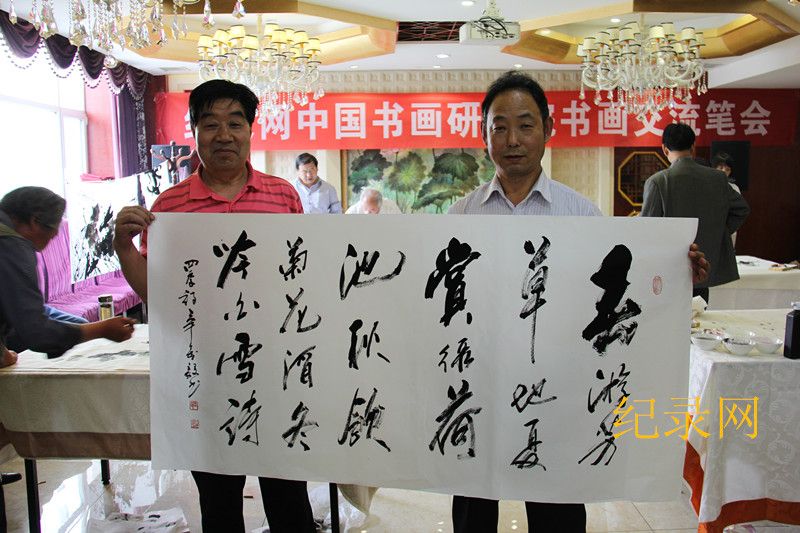 网中国书画研 书画交流笔会
春游芳
草地夏
賞绿荷
池秋飲
菊花酒冬
吟白雪詩
纪录网